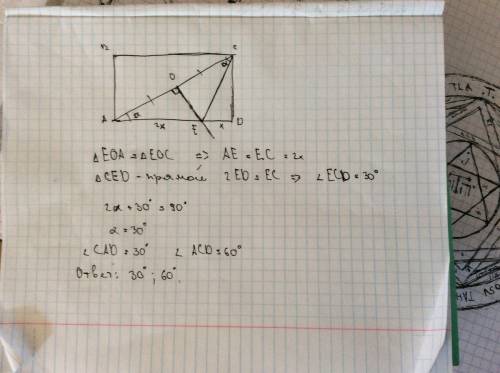 B C
O
α
A α 2x E x D
△EOA = △EOC => AE = EC = 2x
△CED - прямой 2ED = EC => ∠ECD = 30°
2α + 30° = 90°
α = 30°
∠CAD = 30° ∠ACD = 60°
Ответ: 30°; 60°.
TLA